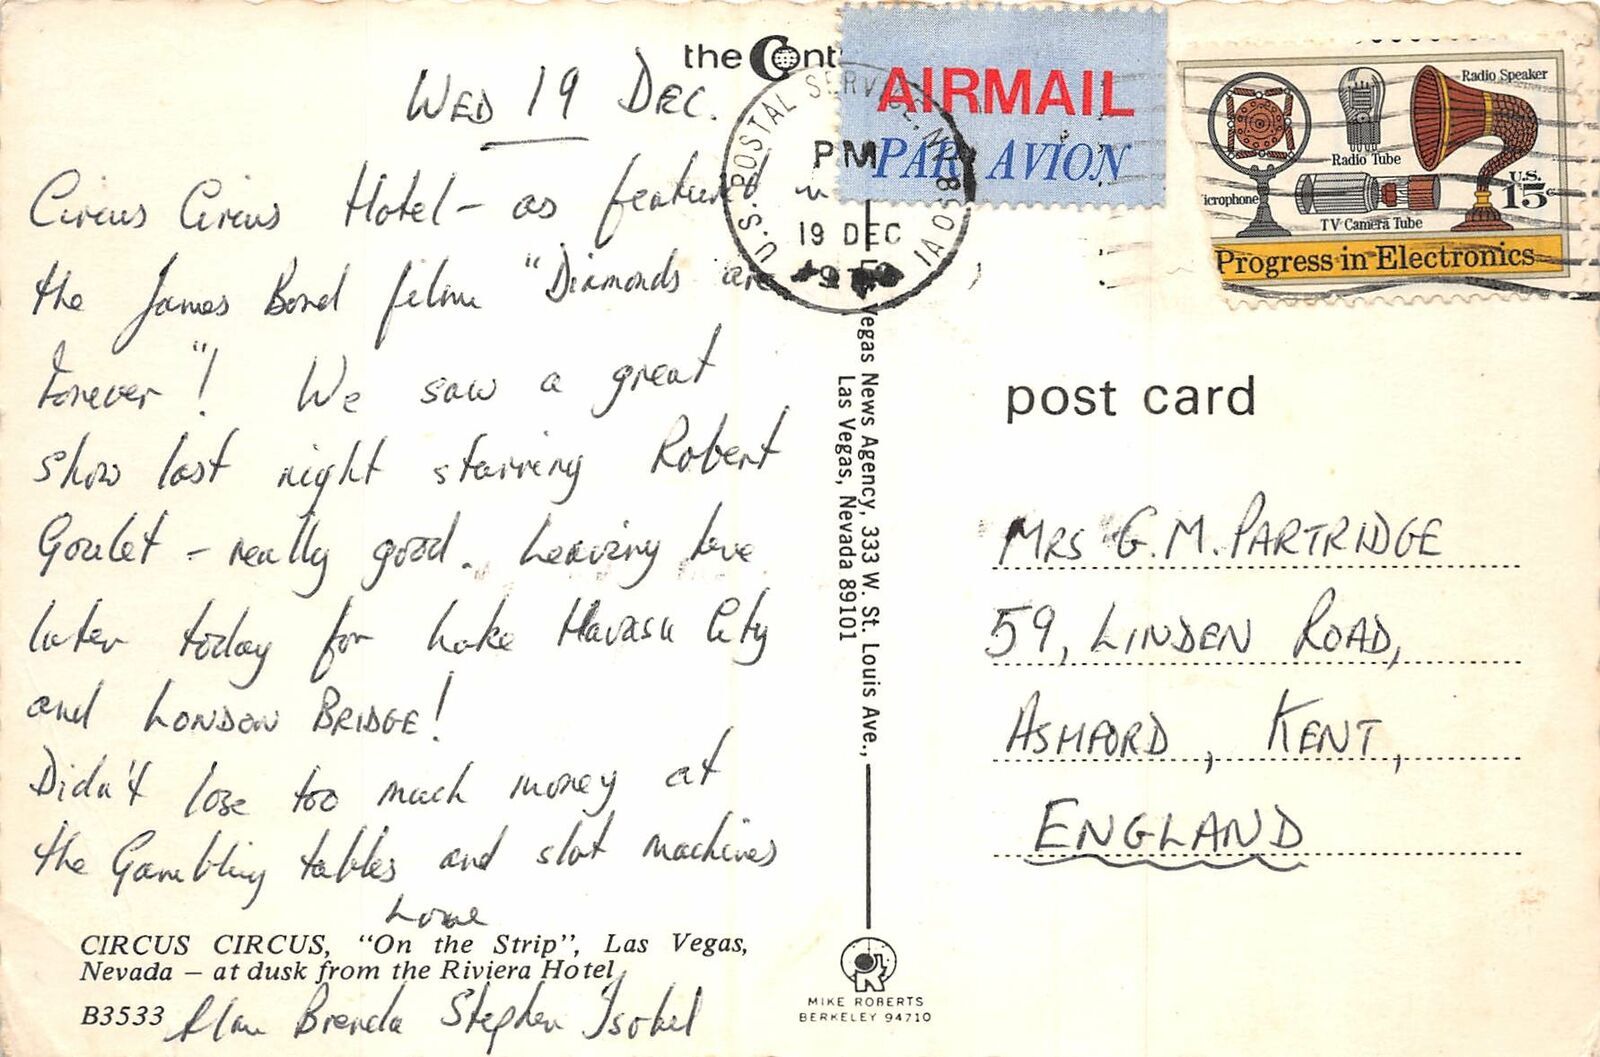 the Cont
WED 19 DEC.
Circus Circus Hotel - as featured in
the James Bond film "Diamonds are
Forever"! We saw a great
show last night starring Robert
Goulet - really good. Leaving here
later today for Lake Havasu City
and LONDON BRIDGE!
Didn't lose too much money at
the Gambling tables and slot machines
Love
Alan Brenda Stephen Isobel
CIRCUS CIRCUS, "On the Strip", Las Vegas,
Nevada – at dusk from the Riviera Hotel
B3533
AIRMAIL
PAR AVION
U.S. POSTAL SERVICE, N
PM
19 DEC
Vegas News Agency, 333 W. St. Louis Ave.,
Las Vegas, Nevada 89101
MIKE ROBERTS
BERKELEY 94710
Radio Speaker
Radio Tube
icrophone
TV Camera Tube
U.S.
15c
Progress in Electronics
post card
MRS G.M. PARTRIDGE
59, LINDEN ROAD,
ASHFORD, KENT,
ENGLAND